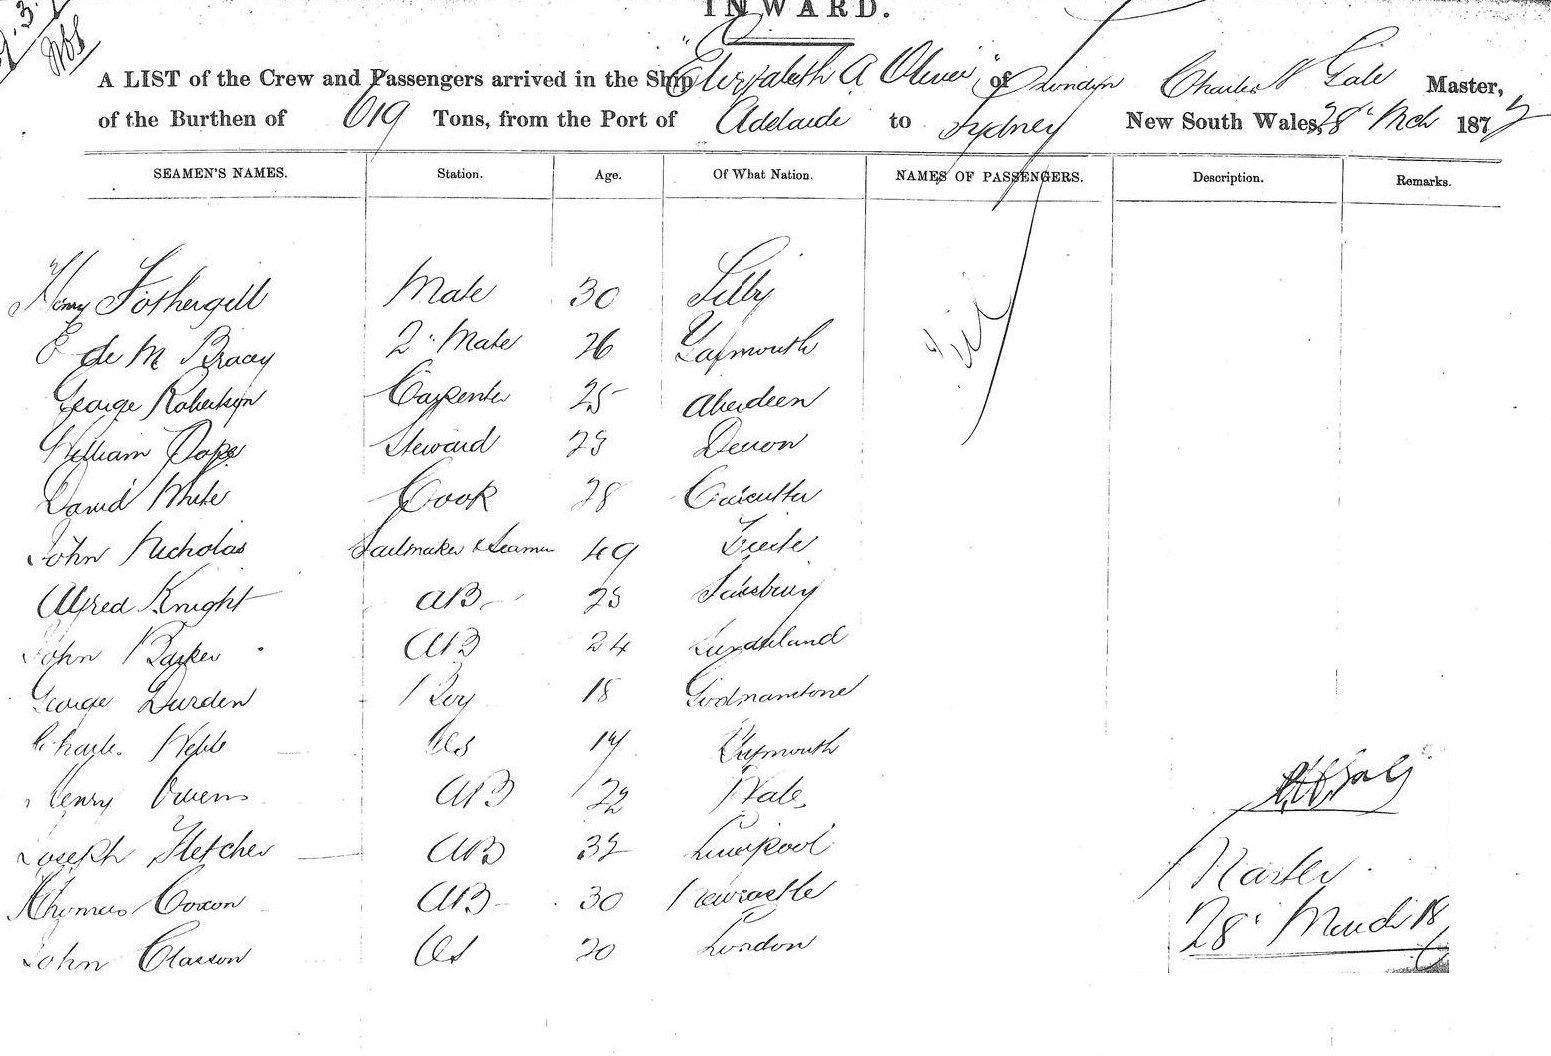 INWARD.
A LIST of the Crew and Passengers arrived in the Ship "Elizabeth A Oliver" of London Charles W Gale Master,
of the Burthen of 619 Tons, from the Port of Adelaide to Sydney New South Wales, 28th Mch 1877
SEAMEN'S NAMES. Station. Age. Of What Nation. NAMES OF PASSENGERS. Description. Remarks.
Henry Fothergill Mate 30 Selby
Nil
E de M Bracey 2d Mate 26 Yarmouth
George Robertson Carpenter 25 Aberdeen
William Pope Steward 25 Devon
David White Cook 28 Calcutta
John Nicholas Sailmaker & Seaman 49
Alfred Knight AB 25 Salisbury
John Barker AB 24 Sunderland
George Durden Boy 18 Godmanstone
Charles Webb OS 17 Weymouth
Henry Owens AB 22 Wales
Joseph Fletcher AB 32 Liverpool
Master
Thomas Coxon AB 30 Newcastle
28th March 187
John Classon OS 20 London